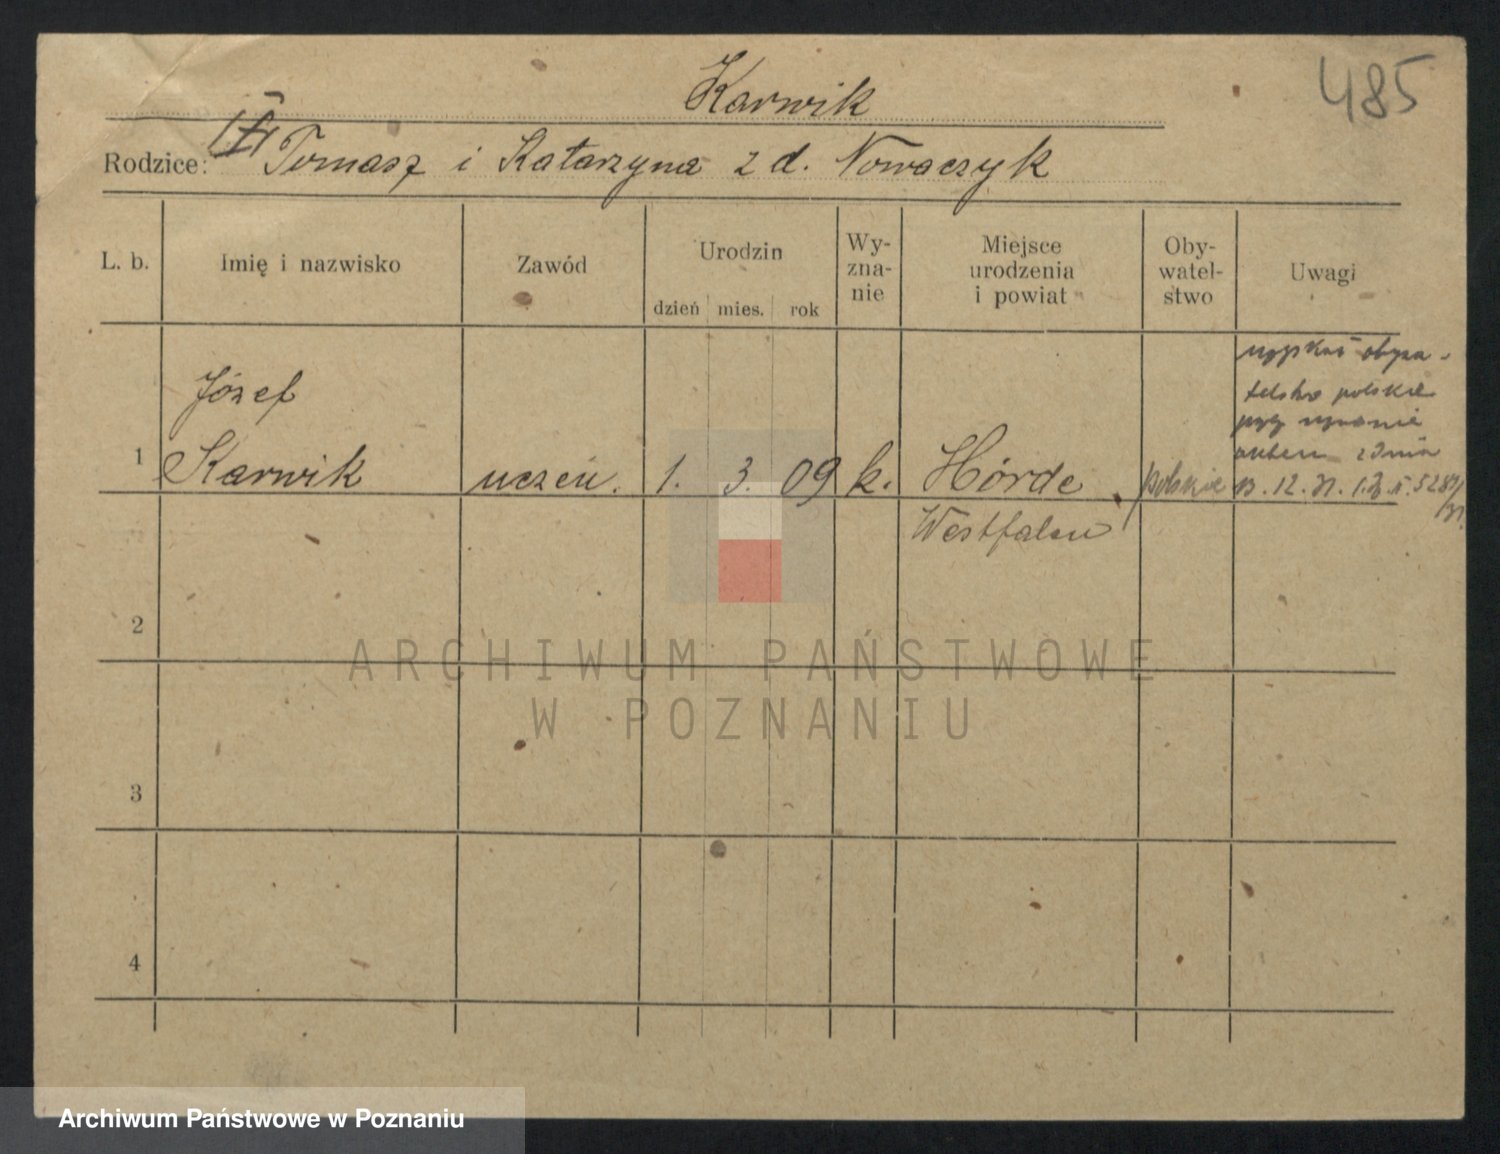 Karwik
485
Rodzice: Tomasz i Katarzyna z d. Nowaczyk
L. b.
Imię i nazwisko
Zawód
Urodzin
dzień mies. rok
Wy-
zna-
nie
Miejsce
urodzenia
i powiat
Oby-
watel-
stwo
Uwagi
1
Józef
Karwik
uczeń.
1. 3. 09
k.
Hörde
Westfalen
polskie
uzyskał obywa-
telstwo polskie
przez uznanie
z dnia
12. 31.
2
3
4
ARCHIWUM PAŃSTWOWE
W POZNANIU
Archiwum Państwowe w Poznaniu